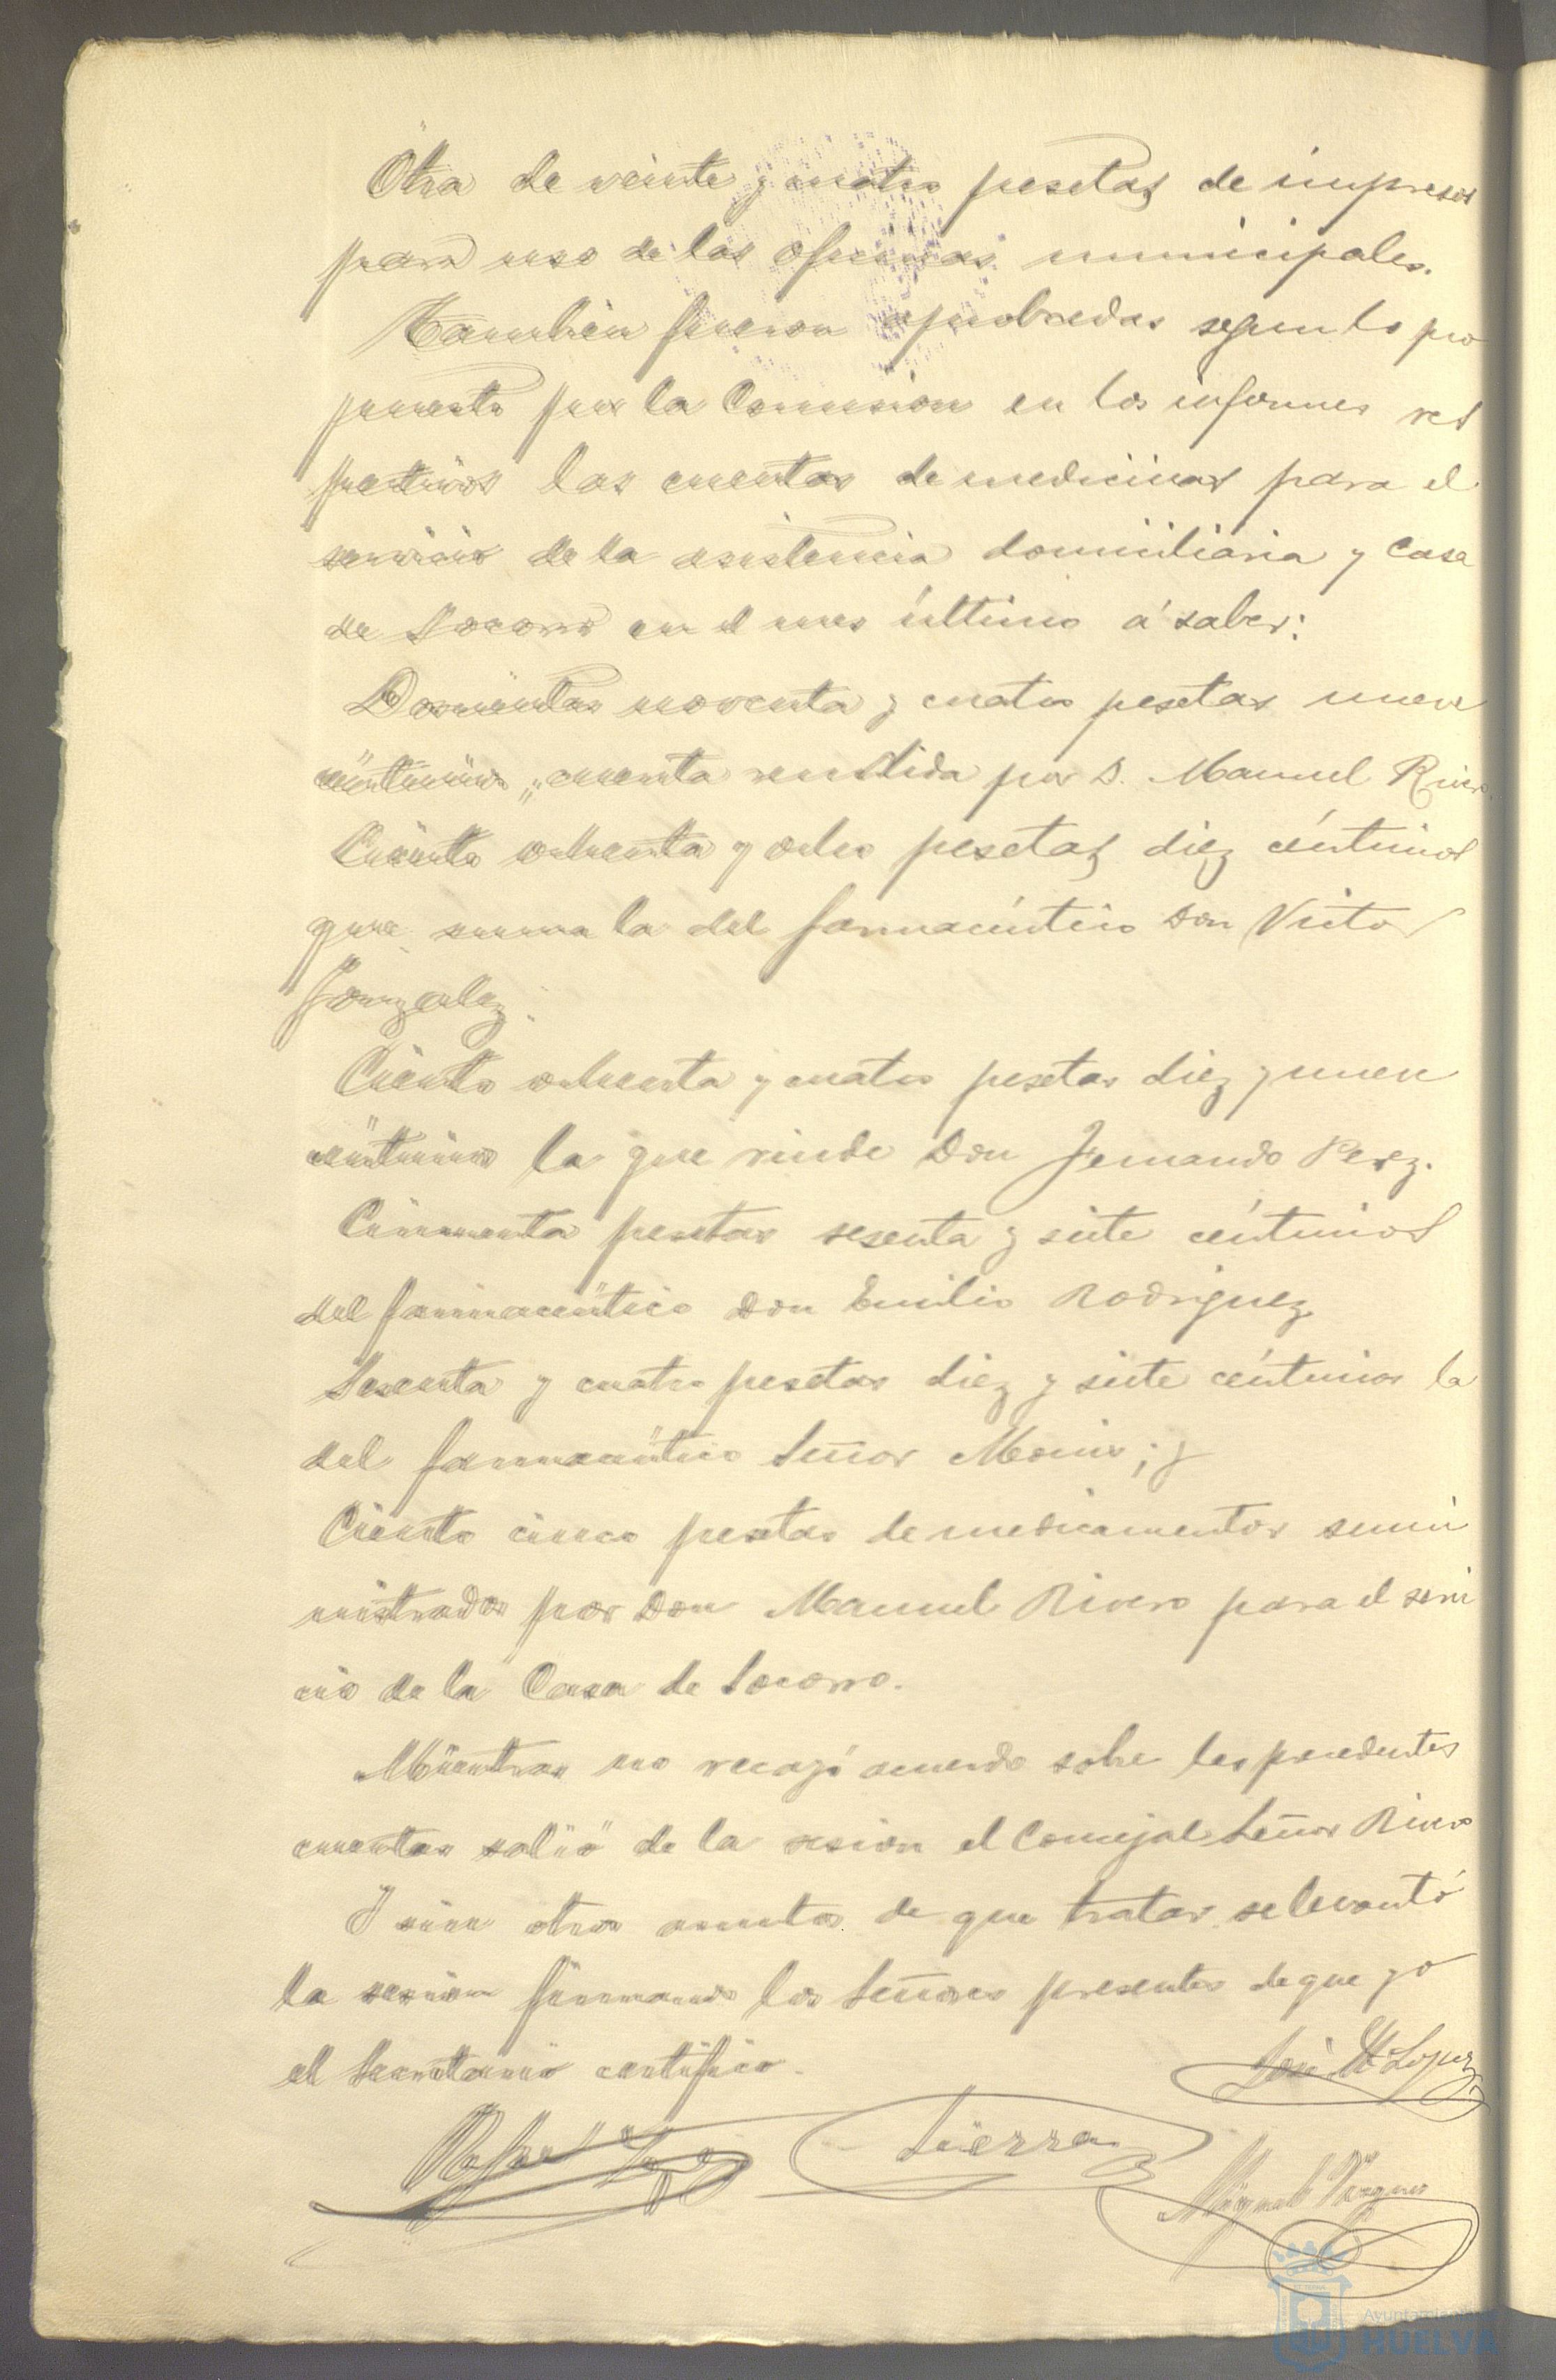 Otra de veinte y cuatro pesetas de impresos
para uso de las oficinas municipales.
Tambien fueron aprobadas segun lo pro
puesto por la Comision en los informes res
pectivos las cuentas de medicinas para el
servicio de la asistencia domiciliaria y Casa
de Socorro en el mes último á saber:
Doscientas noventa y cuatro pesetas nueve
céntimos, cuenta rendida por D. Manuel Rivero.
Ciento ochenta y ocho pesetas diez céntimos
que suma la del farmacéutico Don Victor
Gonzalez.
Ciento ochenta y cuatro pesetas diez y nueve
céntimos la que rinde Don Fernando Perez.
Cincuenta pesetas sesenta y siete céntimos
del farmacéutico Don Emilio Rodriguez
Sesenta y cuatro pesetas diez y siete céntimos la
del farmacéutico Señor ; y
Ciento cinco pesetas de medicamentos sumi
nistrados por Don Manuel Rivero para el servi
cio de la Casa de Socorro.
Mientras no recayó acuerdo sobre las precedentes
cuentas salió de la sesion el Concejal Señor Rivero
Y sin otros asuntos de que tratar se levantó
la sesion firmando los Señores presentes de que yo
el Secretario certifico.
José M Lopez
Rafael Lopez
Sierra
Miguel Vazquez
Ayuntamiento
HUELVA